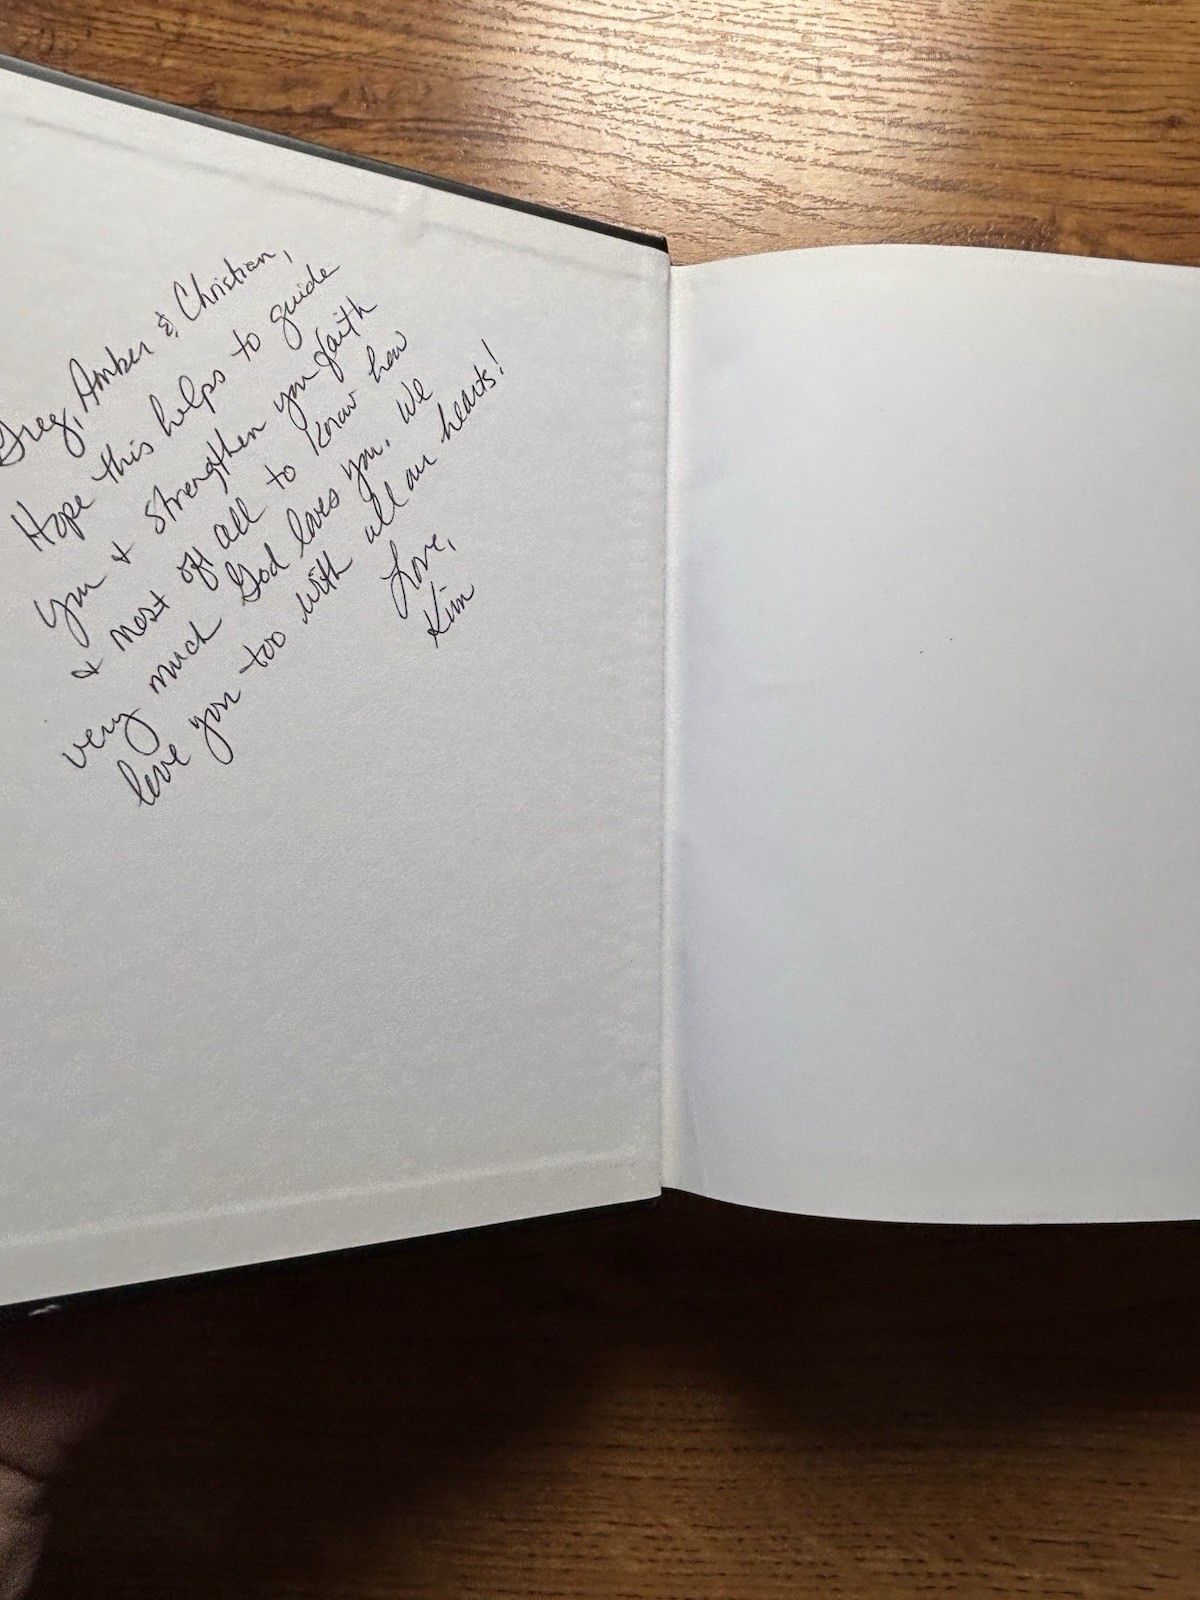 Greg, Amber & Christian,
Hope this helps to guide
you & strengthen your faith
& most off all to know how
very much God loves you. We
love you too with all our hearts!
Love,
Kim